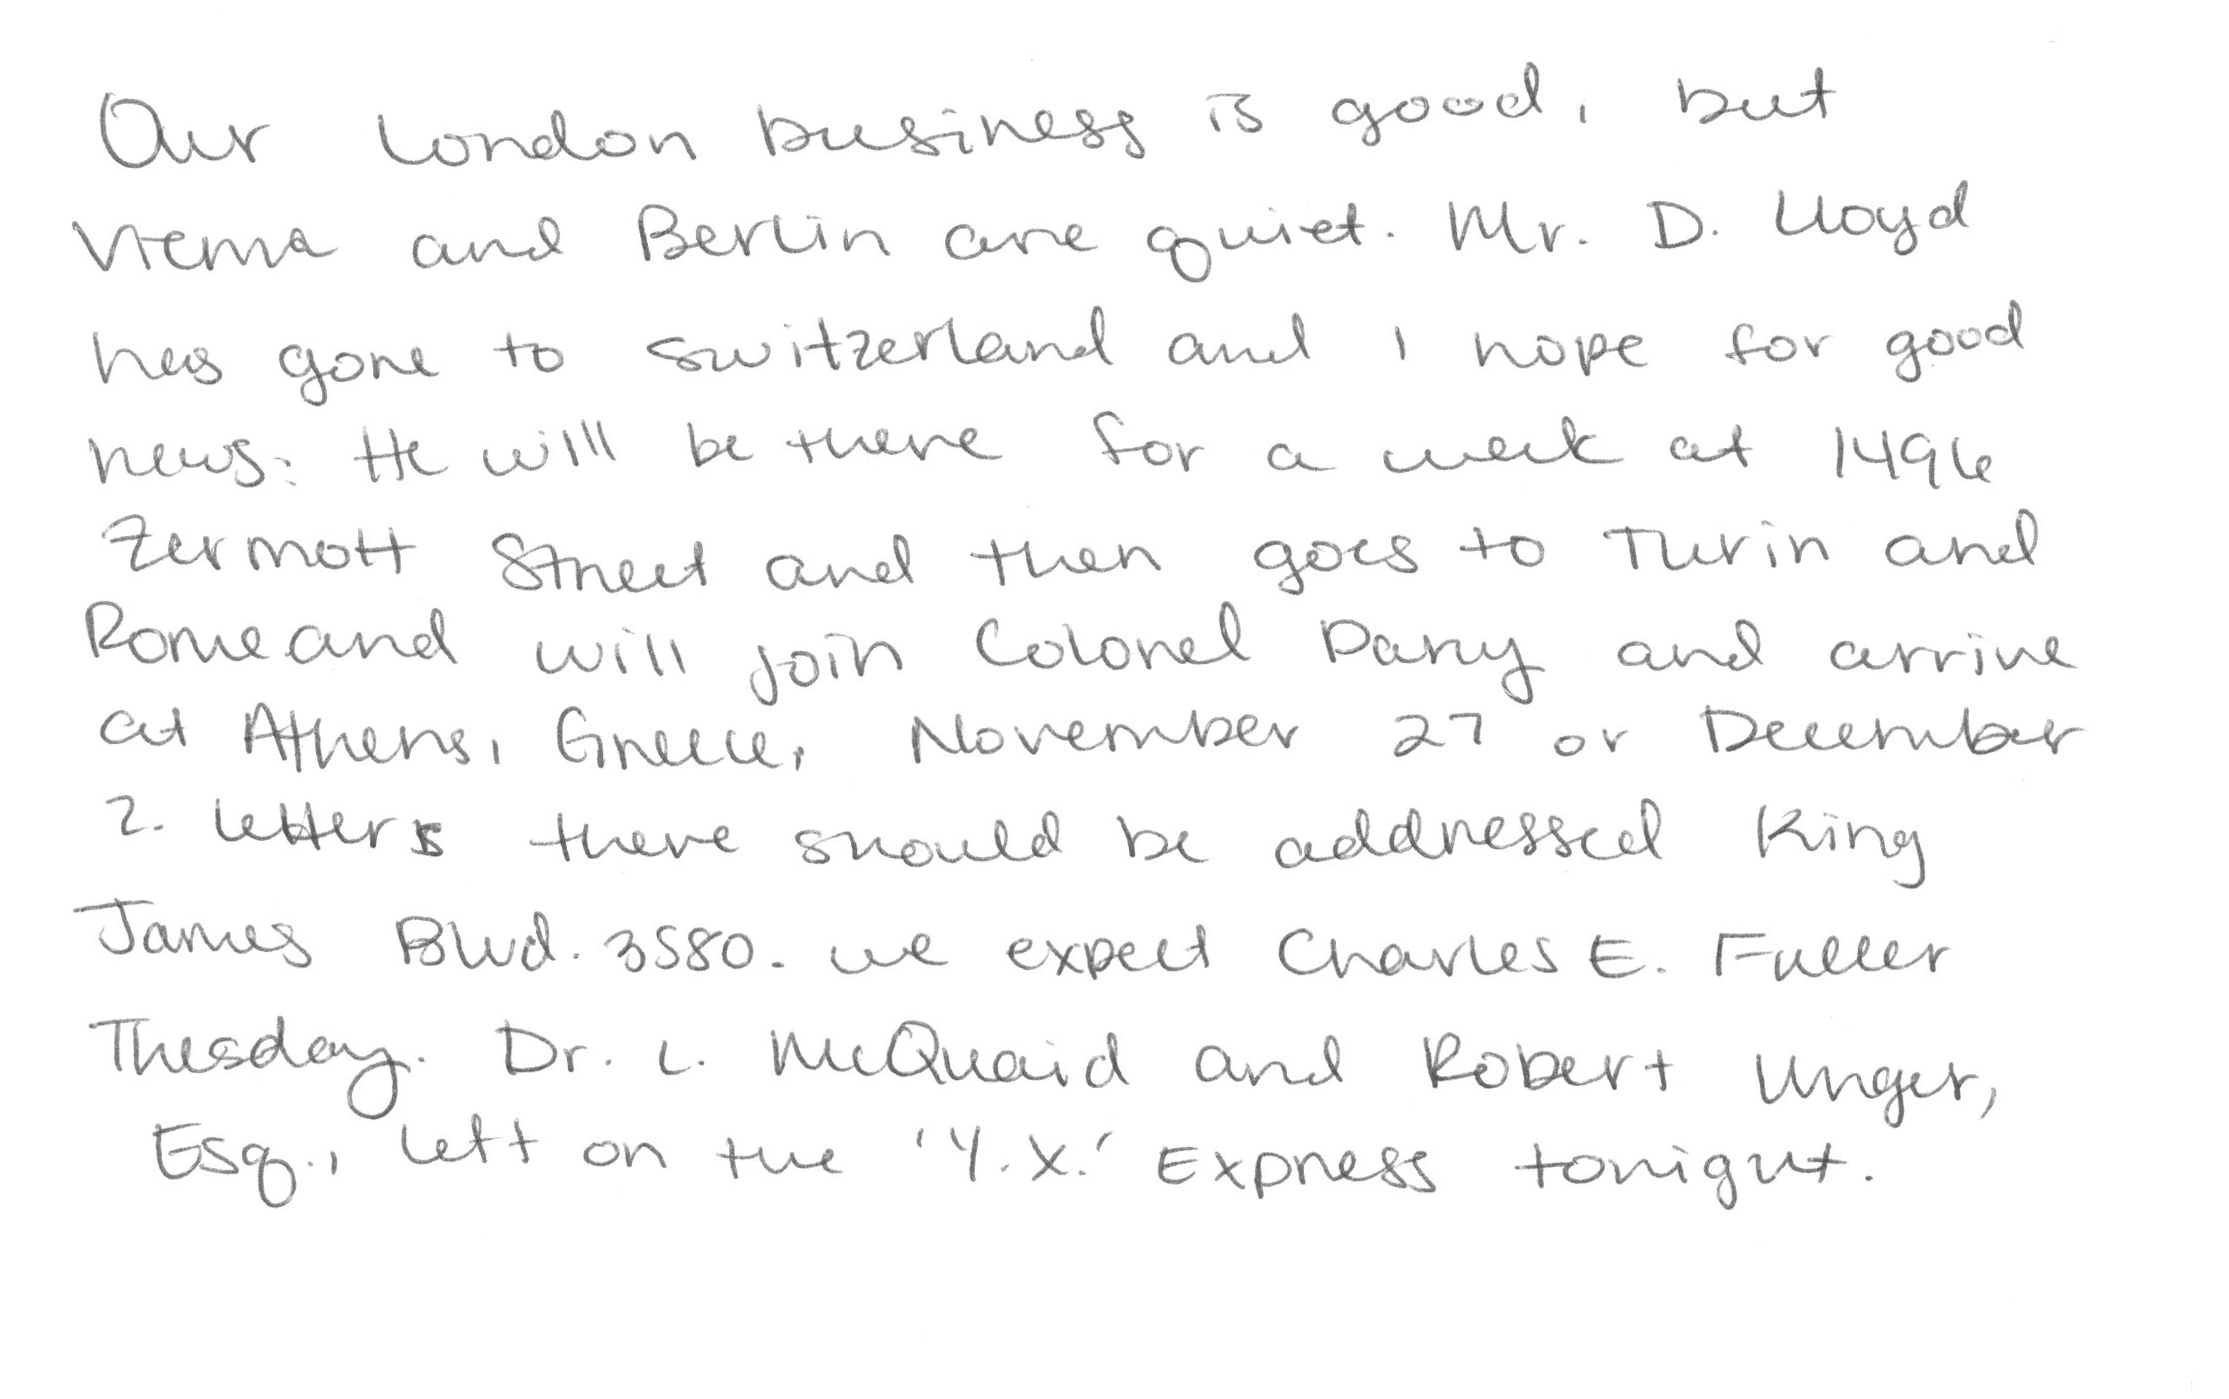 Our London business is good, but
Vienna and Berlin are quiet. Mr. D. Lloyd
has gone to Switzerland and I hope for good
news. He will be there for a week at 1496
Zermott Street and then goes to Turin and
Rome and will join Colonel Parry and arrive
at Athens, Greece, November 27 or December
2. Letters there should be addressed King
James Blvd. 3580. We expect Charles E. Fuller
Tuesday. Dr. L. McQuaid and Robert Unger,
Esq., left on the 'Y.X.' Express tonight.